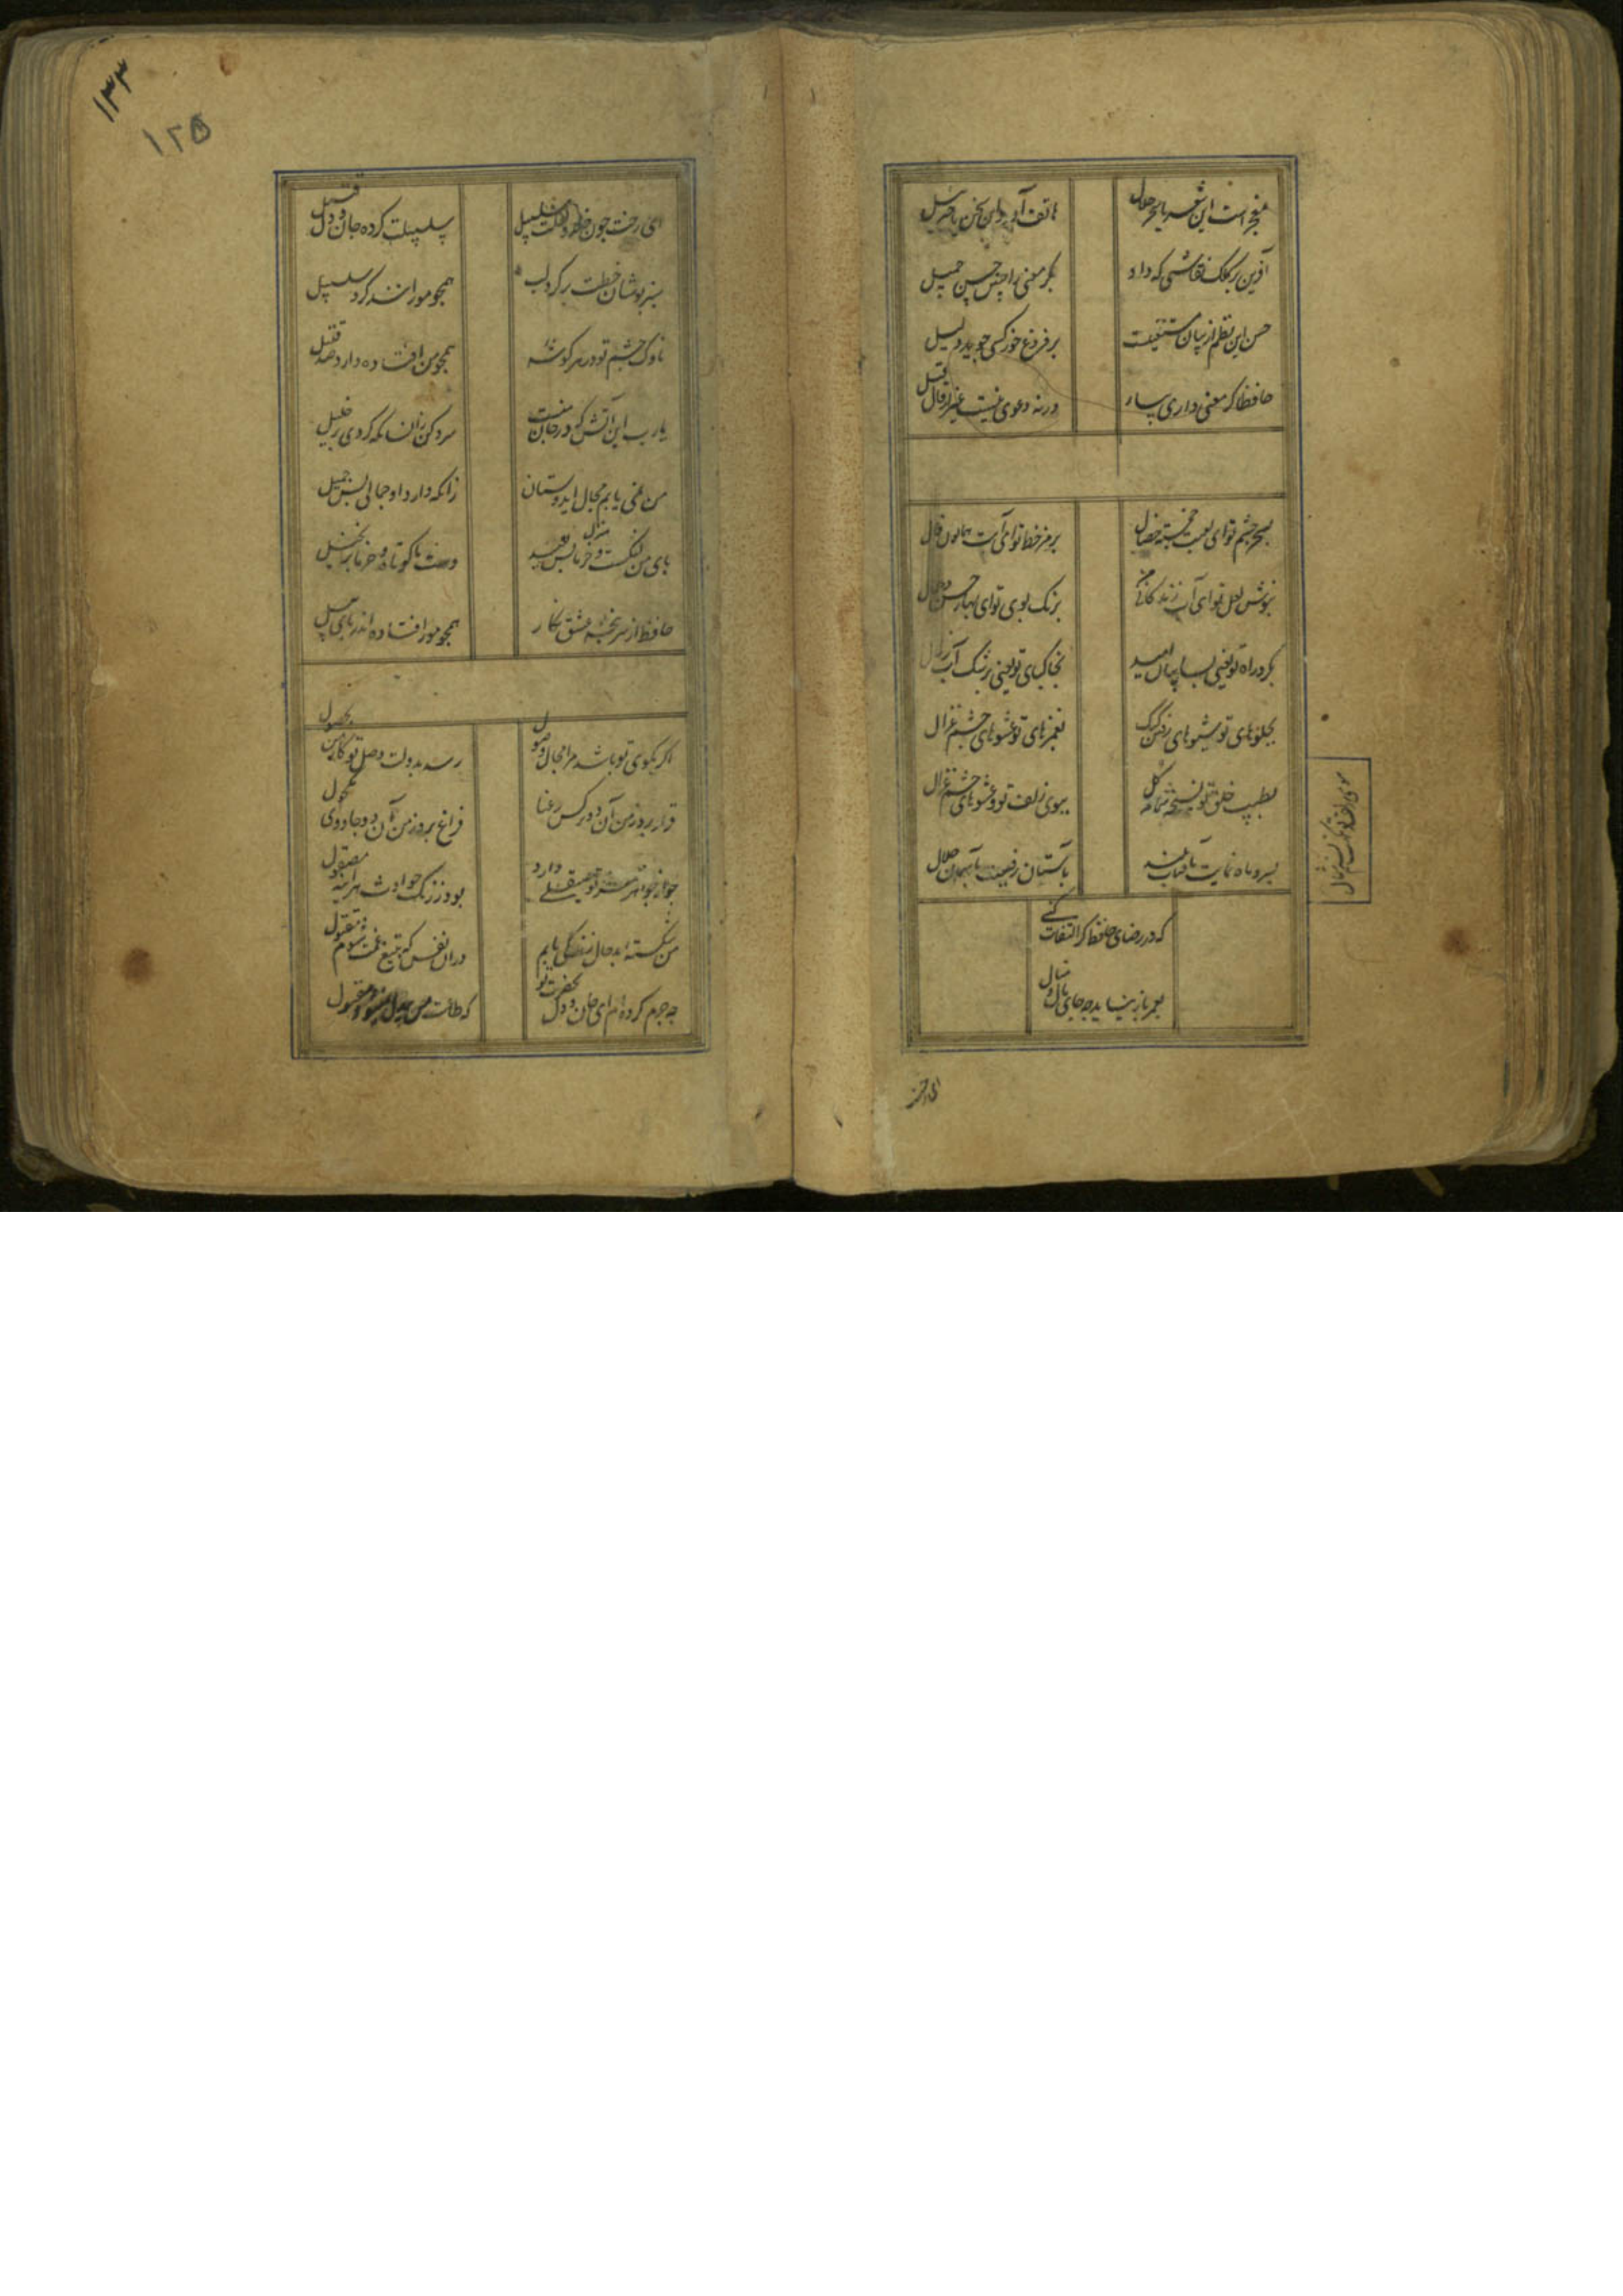 معجز است این شعر یا سحر حلال
هاتف آورد این سخن یا جبرئیل
آفرین بر کلک نقاشی که داد
بکر معنی را چنین حسن جمیل
حسن این نظم از بیان مستغنیست
بر فروغ خور کسی جوید دلیل
حافظا کر معنی داری بیار
ورنه دعوی نیست غیر از قال و قیل
بسحر چشم تو ای لعبت خجسته خصال
برمز خط تو ای آیت همایون فال
بنوش لعل تو ای آب زندکانی من
برنک و بوی تو ای بهار حسن و جمال
بکرد راه تو یعنی بسایبان امید
بخاکپای تو یعنی برشک آب زلال
بجلوهای تو شیوهای رفتن کبک
بغمزهای تو عشوهای چشم غزال
بطیب خلق تو و نسخه شمامه کل
ببوی زلف تو و عشوهای چشم غزال
بسرو ماه نمایت بآفتاب بلند
بآستان رفیعت بآسمان جلال
که در رضای حافظ کر التفات کنی
بعمر باز نیاید چه جای مال و منال
ای رخت
۱۳۳
۱۲۵
ای رخت چون خلد و لعلت سلسبیل
سلسبیلت کرده جان و دل سبیل
سبزپوشان خطت بر کرد لب
همچو مورانند کرد سلسبیل
ناوک چشم تو در هر کوشه
همچو من افتاده دارد صد قتیل
یا رب این آتش که در جان منست
سرد کن زانسان که کردی بر خلیل
من نمی یابم مجال ای دوستان
زانکه دارد او جمالی بس جمیل
پای من لنکست و منزل بس بعید
دست ما کوتاه و خرما بر نخیل
حافظ از سرپنجه عشق نکار
همچو مور افتاده اندر پای پیل
اکر بکوی تو باشد مرا مجال وصول
رسد بدولت وصل تو کار من بحصول
قرار برد ز من آن دو نرکس رعنا
فراغ برد ز من آن دو جادوی مکحول
دارد
بود ز زنک حوادث هر آینه مصقول
من شکسته بدحال زندکی یابم
در آن نفس که بتیغ غمت شوم مقتول
چه جرم کرده ام ای جان و دل بحضرت تو
که طاعت من بیدل نمیشود مقبول